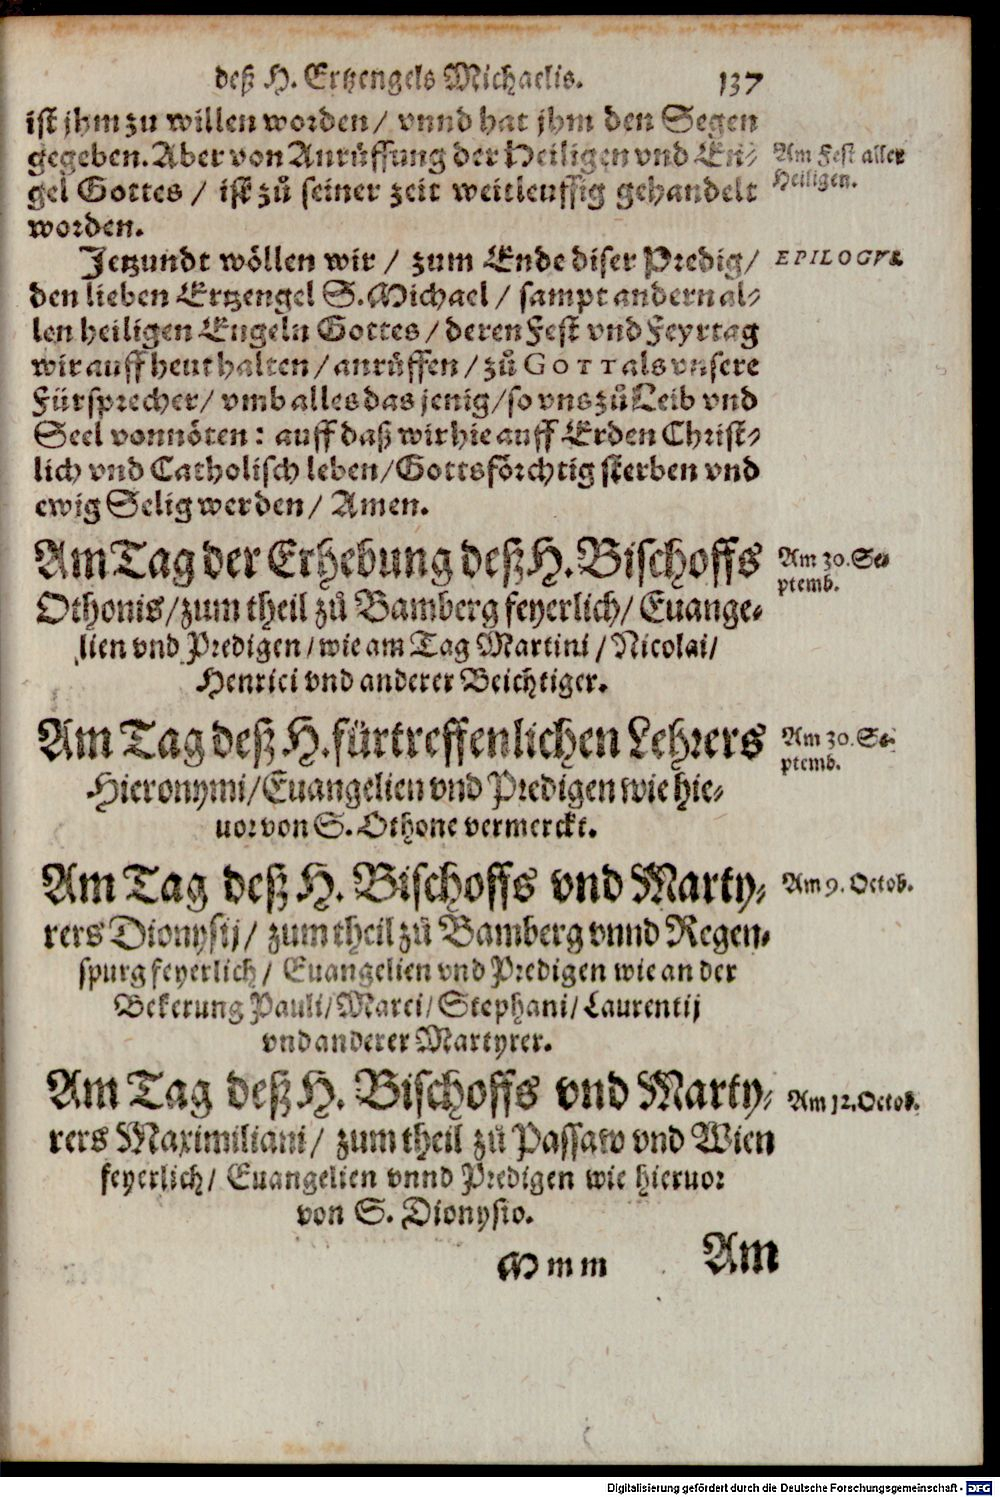 deß H. Ertzengels Michaelis. 137
ist jhm zu willen worden / vnnd hat jhm den Segen
gegeben. Aber von Anrüffung der Heiligen vnd En-
Am Fest aller
Heiligen.
gel Gottes / ist zů seiner zeit weitleuffig gehandelt
worden.
Jetzundt wöllen wir / zum Ende diser Predig /
EPILOGVS.
den lieben Ertzengel S. Michael / sampt andern al-
len heiligen Engeln Gottes / deren Fest vnd Feyrtag
wir auff heut halten / anrüffen / zů GOTT als vnsere
Fürsprecher / vmb alles das jenig / so vns zů Leib vnd
Seel vonnöten: auff daß wir hie auff Erden Christ-
lich vnd Catholisch leben / Gottsförchtig sterben vnd
ewig Selig werden / Amen.
Am Tag der Erhebung deß H. Bischoffs
Am 30. Se-
ptemb.
Othonis / zum theil zů Bamberg feyerlich / Euange-
lien vnd Predigen / wie am Tag Martini / Nicolai /
Henrici vnd anderer Beichtiger.
Am Tag deß H. fürtreffenlichen Lehrers
Am 30. Se-
ptemb.
Hieronymi / Euangelien vnd Predigen wie hie-
uor von S. Othone vermerckt.
Am Tag deß H. Bischoffs vnd Marty-
Am 9. Octob.
rers Dionysij / zum theil zů Bamberg vnnd Regen-
spurg feyerlich / Euangelien vnd Predigen wie an der
Bekerung Pauli / Marci / Stephani / Laurentij
vnd anderer Martyrer.
Am Tag deß H. Bischoffs vnd Marty-
Am 12. Octob.
rers Maximiliani / zum theil zů Passaw vnd Wien
feyerlich / Euangelien vnnd Predigen wie hieruor
von S. Dionysio.
Mmm Am
Digitalisierung gefördert durch die Deutsche Forschungsgemeinschaft - DFG